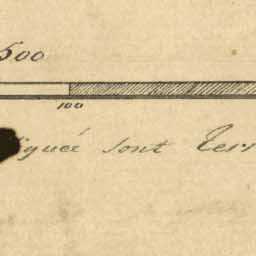 500
100
iqué sont Ter